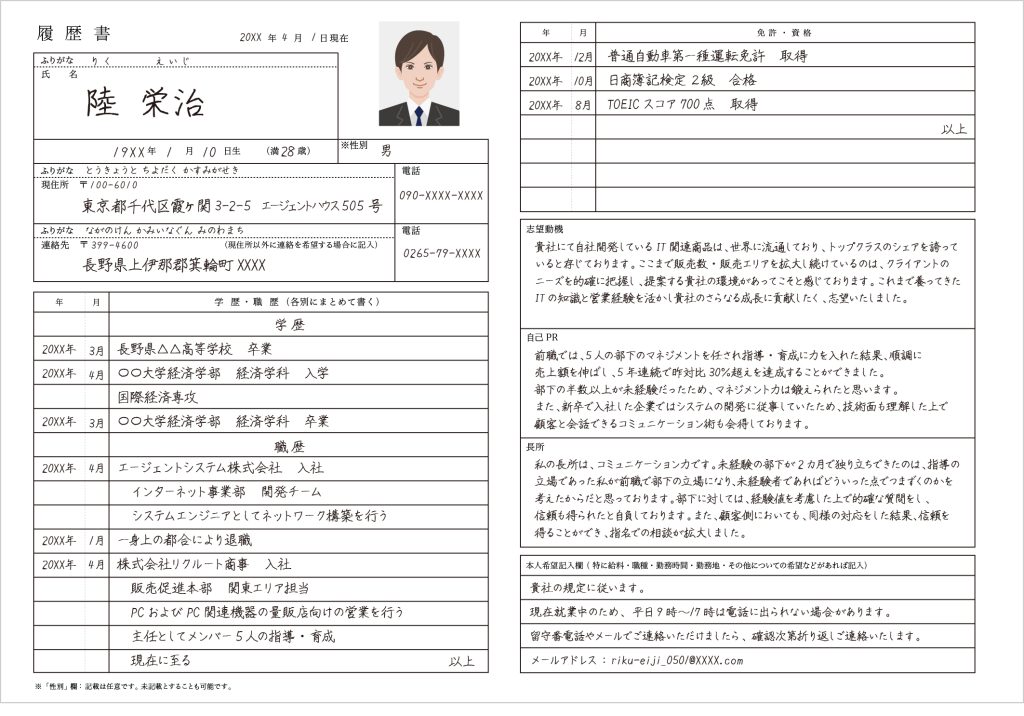 履歴書
20XX 年 4 月 1 日現在
ふりがな りく えいじ
氏 名
陸 栄治
19XX 年 1 月 10 日生 (満 28 歳)
※性別 男
ふりがな とうきょうと ちよだく かすみがせき
現住所 〒100-6010
東京都千代区霞ヶ関 3-2-5 エージェントハウス 505 号
電話
090-XXXX-XXXX
ふりがな ながのけん かみいなぐん みのわまち
連絡先 〒399-4600 (現住所以外に連絡を希望する場合に記入)
長野県上伊那郡箕輪町 XXXX
電話
0265-79-XXXX
年 月 学 歴・職 歴(各別にまとめて書く)
学 歴
20XX年 3月 長野県△△高等学校 卒業
20XX年 4月 〇〇大学経済学部 経済学科 入学
国際経済専攻
20XX年 3月 〇〇大学経済学部 経済学科 卒業
職 歴
20XX年 4月 エージェントシステム株式会社 入社
インターネット事業部 開発チーム
システムエンジニアとしてネットワーク構築を行う
20XX年 1月 一身上の都合により退職
20XX年 4月 株式会社リクルート商事 入社
販売促進本部 関東エリア担当
PC および PC 関連機器の量販店向けの営業を行う
主任としてメンバー 5 人の指導・育成
現在に至る 以上
※「性別」欄:記載は任意です。未記載とすることも可能です。
年 月 免 許・資 格
20XX年 12月 普通自動車第一種運転免許 取得
20XX年 10月 日商簿記検定 2 級 合格
20XX年 8月 TOEIC スコア 700 点 取得
以上
志望動機
貴社にて自社開発している IT 関連商品は、世界に流通しており、トップクラスのシェアを誇って
いると存じております。ここまで販売数・販売エリアを拡大し続けているのは、クライアントの
ニーズを的確に把握し、提案する貴社の環境があってこそと感じております。これまで養ってきた
IT の知識と営業経験を活かし貴社のさらなる成長に貢献したく、志望いたしました。
自己 PR
前職では、5 人の部下のマネジメントを任され指導・育成に力を入れた結果、順調に
売上額を伸ばし、5 年連続で昨対比 30%超えを達成することができました。
部下の半数以上が未経験だったため、マネジメント力は鍛えられたと思います。
また、新卒で入社した企業ではシステムの開発に従事していたため、技術面も理解した上で
顧客と会話できるコミュニケーション術も会得しております。
長所
私の長所は、コミュニケーション力です。未経験の部下が 2 カ月で独り立ちできたのは、指導の
立場であった私が前職で部下の立場になり、未経験者であればどういった点でつまずくのかを
考えたからだと思っております。部下に対しては、経験値を考慮した上で的確な質問をし、
信頼も得られたと自負しております。また、顧客側においても、同様の対応をした結果、信頼を
得ることができ、指名での相談が拡大しました。
本人希望記入欄(特に給料・職種・勤務時間・勤務地・その他についての希望などがあれば記入)
貴社の規定に従います。
現在就業中のため、平日 9 時〜17 時は電話に出られない場合があります。
留守番電話やメールでご連絡いただけましたら、確認次第折り返しご連絡いたします。
メールアドレス:riku-eiji_0501@XXXX.com